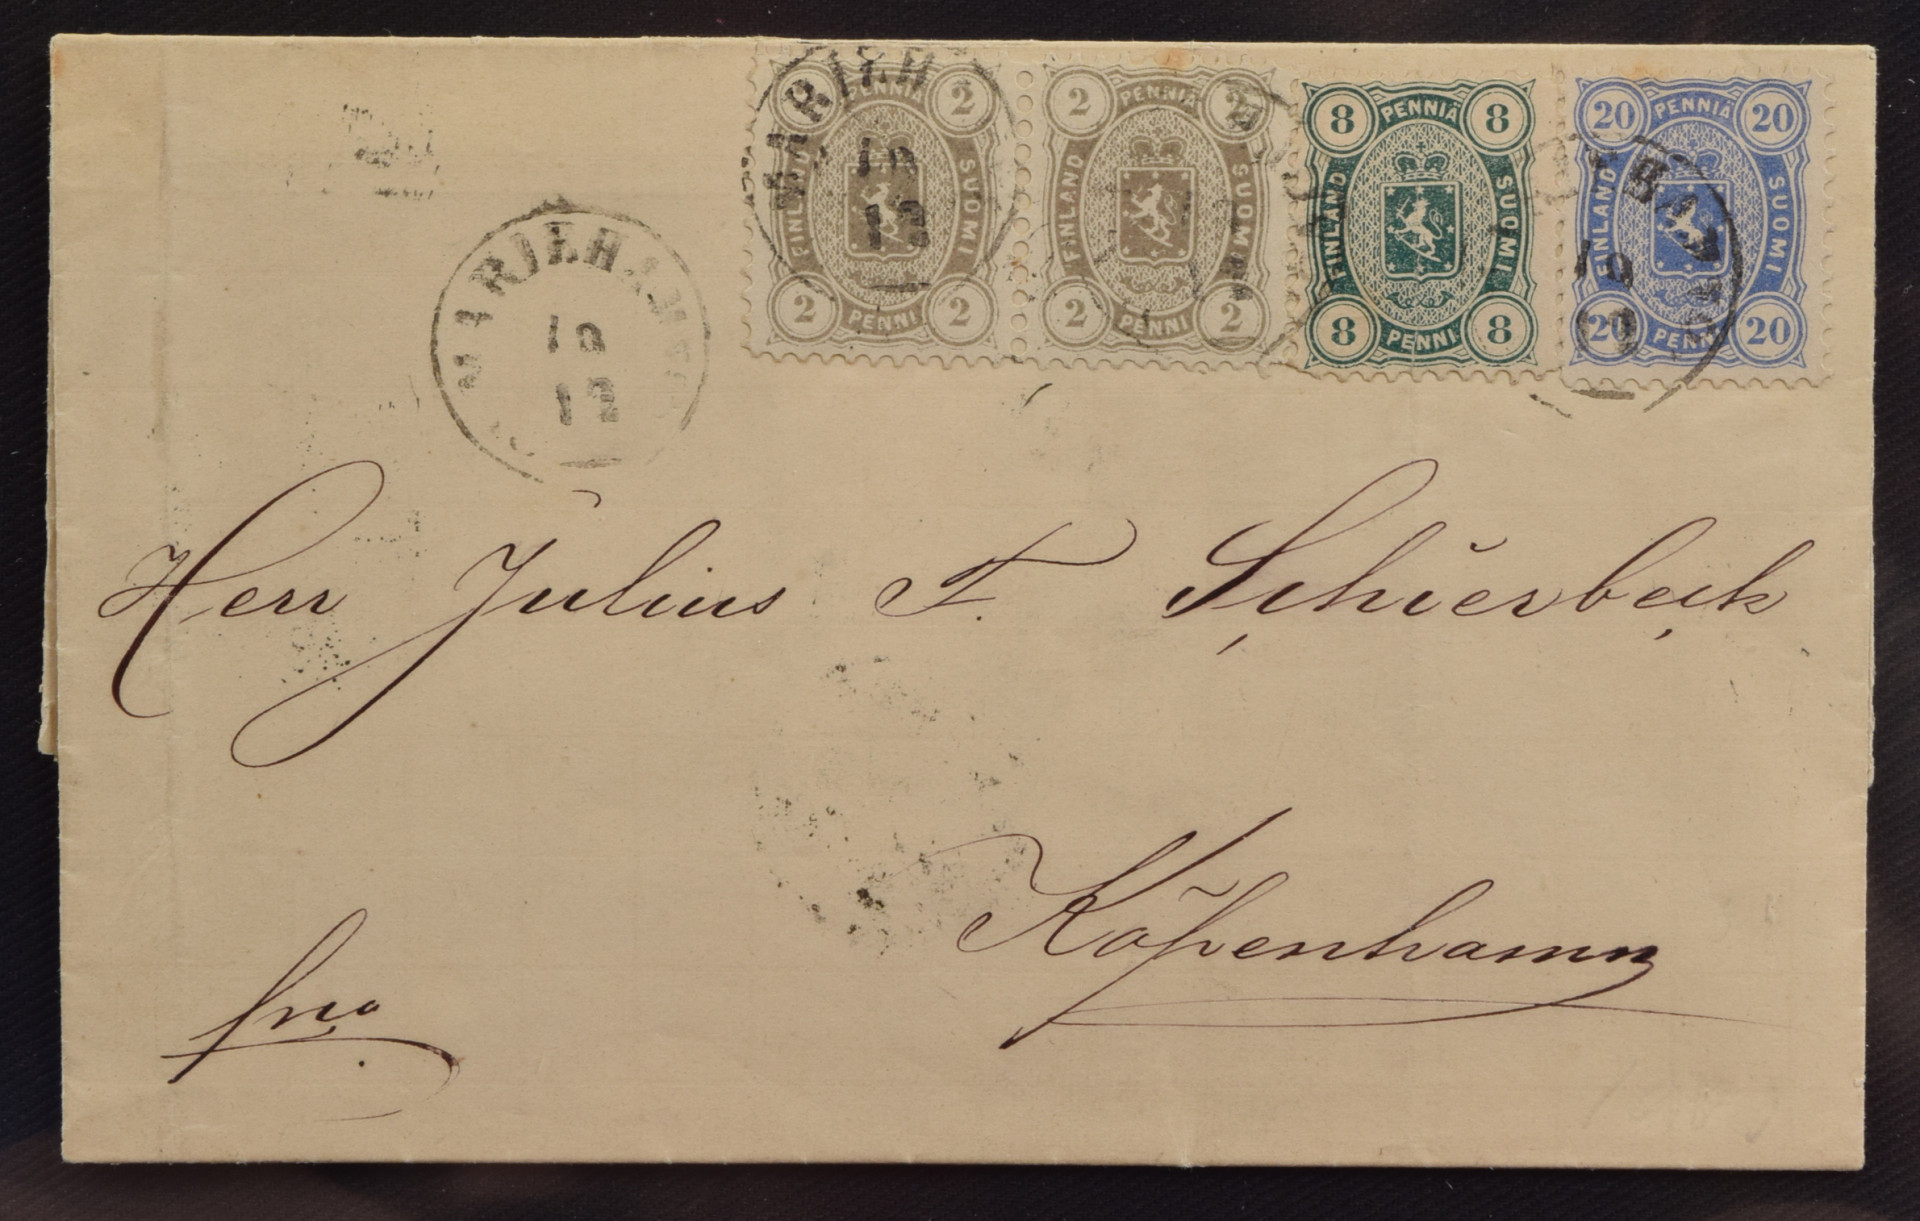 2 PENNIÄ 2
FINLAND SUOMI
2 PENNI 2
2 PENNIÄ 2
FINLAND SUOMI
2 PENNI 2
8 PENNIÄ 8
FINLAND SUOMI
8 PENNI 8
20 PENNIÄ 20
FINLAND SUOMI
20 PENNI 20
MARIEH
10
12
MARIEHAMN
10
12
Herr Julius F. Schierbeck
Köpenhamn
frco